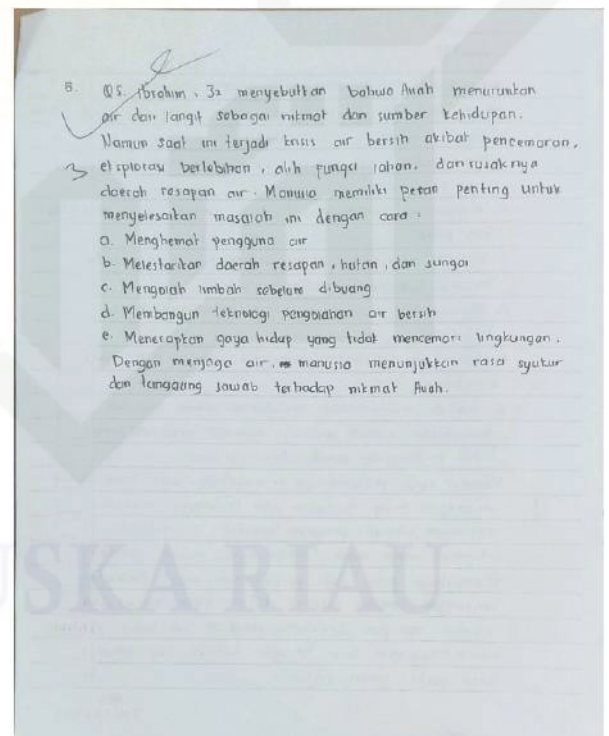 5. QS. Ibrohim, 32 menyebutkan bahwa Allah menurunkan
air dari langit sebagai nikmat dan sumber kehidupan.
Namun saat ini terjadi krisis air bersih akibat pencemaran,
3 eksplorasi berlebihan, alih fungsi lahan, dan rusaknya
daerah resapan air. Manusia memiliki peran penting untuk
menyelesaikan masalah ini dengan cara :
a. Menghemat pengguna air
b. Melestarikan daerah resapan, hutan, dan sungai
c. Mengolah limbah sebelum dibuang
d. Membangun teknologi pengolahan air bersih
e. Menerapkan gaya hidup yang tidak mencemari lingkungan.
Dengan menjaga air, manusia menunjukkan rasa syukur
dan tanggung jawab terhadap nikmat Allah.
USKA RIAU